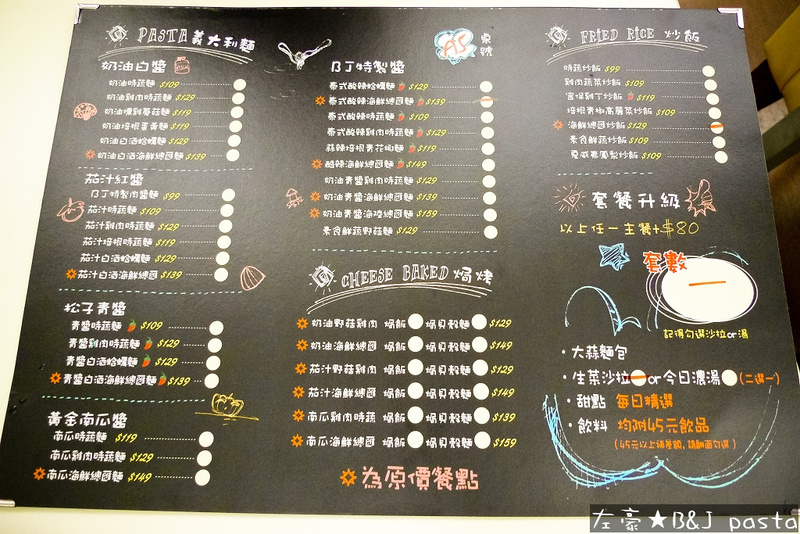 PASTA 義大利麵
奶油白醬
奶油時蔬麵 $109
奶油雞肉時蔬麵 $129
奶油燻雞蘑菇麵 $119
奶油培根蛋黃麵 $119
奶油白酒蛤蠣麵 $129
奶油白酒海鮮總匯 $139
茄汁紅醬
BJ特製肉醬麵 $99
茄汁時蔬麵 $109
茄汁雞肉時蔬麵 $129
茄汁培根時蔬麵 $119
茄汁白酒蛤蠣麵 $129
茄汁白酒海鮮總匯 $139
松子青醬
青醬時蔬麵 $109
青醬雞肉時蔬麵 $129
青醬白酒蛤蠣麵 $129
青醬白酒海鮮總匯麵 $139
黃金南瓜醬
南瓜時蔬麵 $119
南瓜雞肉時蔬麵 $129
南瓜海鮮總匯麵 $149
A5 桌號
BJ特製醬
泰式酸辣蛤蠣麵 $129
泰式酸辣海鮮總匯麵 $139
泰式酸辣時蔬麵 $109
泰式酸辣雞肉時蔬麵 $129
蒜辣培根青花椒麵 $119
酸辣海鮮總匯麵 $149
奶油青醬雞肉時蔬麵 $129
奶油青醬海鮮總匯麵 $139
奶油青醬海陸總匯麵 $159
素食鮮蔬野菇麵 $129
CHEESE BAKED 焗烤
奶油野菇雞肉 焗飯 焗貝殼麵 $129
奶油海鮮總匯 焗飯 焗貝殼麵 $149
茄汁野菇雞肉 焗飯 焗貝殼麵 $129
茄汁海鮮總匯 焗飯 焗貝殼麵 $149
南瓜雞肉時蔬 焗飯 焗貝殼麵 $139
南瓜海鮮總匯 焗飯 焗貝殼麵 $159
為原價餐點
FRIED RICE 炒飯
時蔬炒飯 $99
雞肉蔬菜炒飯 $109
宮保雞丁炒飯 $119
培根青椒高麗菜炒飯 $109
海鮮總匯炒飯 $129
素食鮮蔬炒飯 $109
夏威夷鳳梨炒飯 $109
套餐升級
以上任一主餐+$80
套數
一
記得勾選沙拉or湯
・大蒜麵包
・生菜沙拉 or 今日濃湯 (二選一)
・甜點 每日精選
・飲料 均附45元飲品
(45元以上補差額, 請翻面勾選)
左豪★B&J pasta